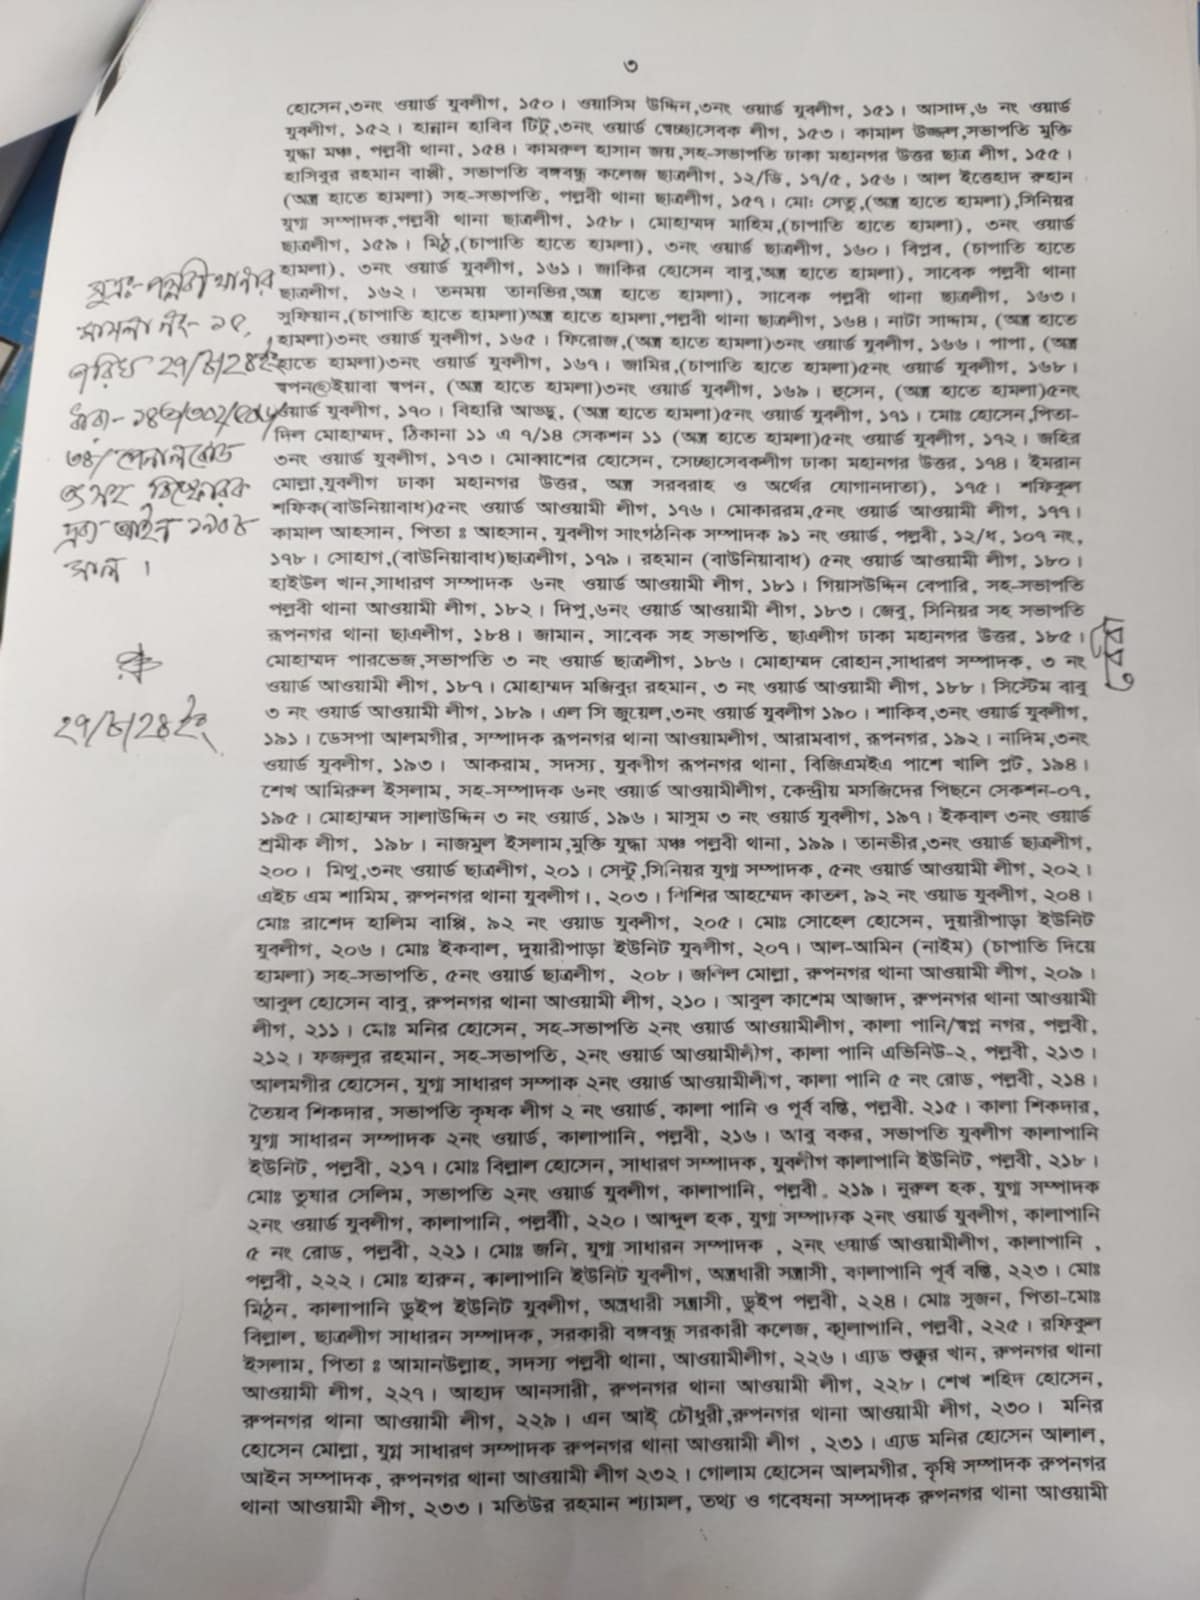 ৩
হোসেন,৩নং ওয়ার্ড যুবলীগ, ১৫০। ওয়াসিম উদ্দিন,৩নং ওয়ার্ড যুবলীগ, ১৫১। আসাদ,৬ নং ওয়ার্ড
যুবলীগ, ১৫২। হান্নান হাবিব টিটু,৩নং ওয়ার্ড স্বেচ্ছাসেবক লীগ, ১৫৩। কামাল উজ্জল,সভাপতি মুক্তি
যুদ্ধা মঞ্চ, পল্লবী থানা, ১৫৪। কামরুল হাসান জয়,সহ-সভাপতি ঢাকা মহানগর উত্তর ছাত্র লীগ, ১৫৫।
হাসিবুর রহমান বাপ্পী, সভাপতি বঙ্গবন্ধু কলেজ ছাত্রলীগ, ১২/ডি, ১৭/৫, ১৫৬। আল ইত্তেহাদ রুহান
(অস্ত্র হাতে হামলা) সহ-সভাপতি, পল্লবী থানা ছাত্রলীগ, ১৫৭। মো: সেতু,(অস্ত্র হাতে হামলা),সিনিয়র
যুগ্ম সম্পাদক,পল্লবী থানা ছাত্রলীগ, ১৫৮। মোহাম্মদ মাহিম,(চাপাতি হাতে হামলা), ৩নং ওয়ার্ড
ছাত্রলীগ, ১৫৯। মিঠু,(চাপাতি হাতে হামলা), ৩নং ওয়ার্ড ছাত্রলীগ, ১৬০। বিপ্লব, (চাপাতি হাতে
হামলা), ৩নং ওয়ার্ড যুবলীগ, ১৬১। জাকির হোসেন বাবু,অস্ত্র হাতে হামলা), সাবেক পল্লবী থানা
ছাত্রলীগ, ১৬২। তনময় তানভির,অস্ত্র হাতে হামলা), সাবেক পল্লবী থানা ছাত্রলীগ, ১৬৩।
সুফিয়ান,(চাপাতি হাতে হামলা)অস্ত্র হাতে হামলা,পল্লবী থানা ছাত্রলীগ, ১৬৪। নাটা সাদ্দাম, (অস্ত্র হাতে
হামলা)৩নং ওয়ার্ড যুবলীগ, ১৬৫। ফিরোজ,(অস্ত্র হাতে হামলা)৩নং ওয়ার্ড যুবলীগ, ১৬৬। পাপা, (অস্ত্র
হাতে হামলা)৩নং ওয়ার্ড যুবলীগ, ১৬৭। জামির,(চাপাতি হাতে হামলা)৫নং ওয়ার্ড যুবলীগ, ১৬৮।
স্বপন@ইয়াবা স্বপন, (অস্ত্র হাতে হামলা)৩নং ওয়ার্ড যুবলীগ, ১৬৯। হুসেন, (অস্ত্র হাতে হামলা)৫নং
ওয়ার্ড যুবলীগ, ১৭০। বিহারি আড্ডু, (অস্ত্র হাতে হামলা)৫নং ওয়ার্ড যুবলীগ, ১৭১। মোঃ হোসেন,পিতা-
দিল মোহাম্মদ, ঠিকানা ১১ এ ৭/১৪ সেকশন ১১ (অস্ত্র হাতে হামলা)৫নং ওয়ার্ড যুবলীগ, ১৭২। জহির
৩নং ওয়ার্ড যুবলীগ, ১৭৩। মোব্বাশের হোসেন, সেচ্ছাসেবকলীগ ঢাকা মহানগর উত্তর, ১৭৪। ইমরান
মোল্লা,যুবলীগ ঢাকা মহানগর উত্তর, অস্ত্র সরবরাহ ও অর্থের যোগানদাতা), ১৭৫। শফিকুল
শফিক(বাউনিয়াবাধ)৫নং ওয়ার্ড আওয়ামী লীগ, ১৭৬। মোকাররম,৫নং ওয়ার্ড আওয়ামী লীগ, ১৭৭।
কামাল আহসান, পিতা ঃ আহসান, যুবলীগ সাংগঠনিক সম্পাদক ৯১ নং ওয়ার্ড, পল্লবী, ১২/ধ, ১০৭ নং,
১৭৮। সোহাগ,(বাউনিয়াবাধ)ছাত্রলীগ, ১৭৯। রহমান (বাউনিয়াবাধ) ৫নং ওয়ার্ড আওয়ামী লীগ, ১৮০।
হাইউল খান,সাধারণ সম্পাদক ৬নং ওয়ার্ড আওয়ামী লীগ, ১৮১। গিয়াসউদ্দিন বেপারি, সহ-সভাপতি
পল্লবী থানা আওয়ামী লীগ, ১৮২। দিপু,৬নং ওয়ার্ড আওয়ামী লীগ, ১৮৩। জেবু, সিনিয়র সহ সভাপতি
রূপনগর থানা ছাএলীগ, ১৮৪। জামান, সাবেক সহ সভাপতি, ছাএলীগ ঢাকা মহানগর উত্তর, ১৮৫।
মোহাম্মদ পারভেজ,সভাপতি ৩ নং ওয়ার্ড ছাত্রলীগ, ১৮৬। মোহাম্মদ রোহান,সাধারণ সম্পাদক, ৩ নং
ওয়ার্ড আওয়ামী লীগ, ১৮৭। মোহাম্মদ মজিবুর রহমান, ৩ নং ওয়ার্ড আওয়ামী লীগ, ১৮৮। সিস্টেম বাবু
৩ নং ওয়ার্ড আওয়ামী লীগ, ১৮৯। এল সি জুয়েল,৩নং ওয়ার্ড যুবলীগ ১৯০। শাকিব,৩নং ওয়ার্ড যুবলীগ,
১৯১। ডেসপা আলমগীর, সম্পাদক রূপনগর থানা আওয়ামলীগ, আরামবাগ, রূপনগর, ১৯২। নাদিম,৩নং
ওয়ার্ড যুবলীগ, ১৯৩। আকরাম, সদস্য, যুবলীগ রূপনগর থানা, বিজিএমইএ পাশে খালি প্লট, ১৯৪।
শেখ আমিরুল ইসলাম, সহ-সম্পাদক ৬নং ওয়ার্ড আওয়ামীলীগ, কেন্দ্রীয় মসজিদের পিছনে সেকশন-০৭,
১৯৫। মোহাম্মদ সালাউদ্দিন ৩ নং ওয়ার্ড, ১৯৬। মাসুম ৩ নং ওয়ার্ড যুবলীগ, ১৯৭। ইকবাল ৩নং ওয়ার্ড
শ্রমীক লীগ, ১৯৮। নাজমুল ইসলাম,মুক্তি যুদ্ধা মঞ্চ পল্লবী থানা, ১৯৯। তানভীর,৩নং ওয়ার্ড ছাত্রলীগ,
২০০। মিথু,৩নং ওয়ার্ড ছাত্রলীগ, ২০১। সেন্টু,সিনিয়র যুগ্ম সম্পাদক, ৫নং ওয়ার্ড আওয়ামী লীগ, ২০২।
এইচ এম শামিম, রুপনগর থানা যুবলীগ।, ২০৩। শিশির আহম্মেদ কাতল, ৯২ নং ওয়াড যুবলীগ, ২০৪।
মোঃ রাশেদ হালিম বাপ্পি, ৯২ নং ওয়াড যুবলীগ, ২০৫। মোঃ সোহেল হোসেন, দুয়ারীপাড়া ইউনিট
যুবলীগ, ২০৬। মোঃ ইকবাল, দুয়ারীপাড়া ইউনিট যুবলীগ, ২০৭। আল-আমিন (নাইম) (চাপাতি দিয়ে
হামলা) সহ-সভাপতি, ৫নং ওয়ার্ড ছাত্রলীগ, ২০৮। জলিল মোল্লা, রুপনগর থানা আওয়ামী লীগ, ২০৯।
আবুল হোসেন বাবু, রুপনগর থানা আওয়ামী লীগ, ২১০। আবুল কাশেম আজাদ, রুপনগর থানা আওয়ামী
লীগ, ২১১। মোঃ মনির হোসেন, সহ-সভাপতি ২নং ওয়ার্ড আওয়ামীলীগ, কালা পানি/স্বপ্ন নগর, পল্লবী,
২১২। ফজলুর রহমান, সহ-সভাপতি, ২নং ওয়ার্ড আওয়ামীলীগ, কালা পানি এভিনিউ-২, পল্লবী, ২১৩।
আলমগীর হোসেন, যুগ্ম সাধারণ সম্পাক ২নং ওয়ার্ড আওয়ামীলীগ, কালা পানি ৫ নং রোড, পল্লবী, ২১৪।
তৈয়ব শিকদার, সভাপতি কৃষক লীগ ২ নং ওয়ার্ড, কালা পানি ও পূর্ব বস্তি, পল্লবী. ২১৫। কালা শিকদার,
যুগ্ম সাধারন সম্পাদক ২নং ওয়ার্ড, কালাপানি, পল্লবী, ২১৬। আবু বকর, সভাপতি যুবলীগ কালাপানি
ইউনিট, পল্লবী, ২১৭। মোঃ বিল্লাল হোসেন, সাধারণ সম্পাদক, যুবলীগ কালাপানি ইউনিট, পল্লবী, ২১৮।
মোঃ তুষার সেলিম, সভাপতি ২নং ওয়ার্ড যুবলীগ, কালাপানি, পল্লবী. ২১৯। নুরুল হক, যুগ্ম সম্পাদক
২নং ওয়ার্ড যুবলীগ, কালাপানি, পল্লবী, ২২০। আব্দুল হক, যুগ্ম সম্পাদক ২নং ওয়ার্ড যুবলীগ, কালাপানি
৫ নং রোড, পল্লবী, ২২১। মোঃ জনি, যুগ্ম সাধারন সম্পাদক , ২নং ওয়ার্ড আওয়ামীলীগ, কালাপানি ,
পল্লবী, ২২২। মোঃ হারুন, কালাপানি ইউনিট যুবলীগ, অস্ত্রধারী সন্ত্রাসী, কালাপানি পূর্ব বস্তি, ২২৩। মোঃ
মিঠুন, কালাপানি ডুইপ ইউনিট যুবলীগ, অস্ত্রধারী সন্ত্রাসী, ডুইপ পল্লবী, ২২৪। মোঃ সুজন, পিতা-মোঃ
বিল্লাল, ছাত্রলীগ সাধারন সম্পাদক, সরকারী বঙ্গবন্ধু সরকারী কলেজ, কালাপানি, পল্লবী, ২২৫। রফিকুল
ইসলাম, পিতা ঃ আমানউল্লাহ, সদস্য পল্লবী থানা, আওয়ামীলীগ, ২২৬। এ্যড শুক্কুর খান, রুপনগর থানা
আওয়ামী লীগ, ২২৭। আহাদ আনসারী, রুপনগর থানা আওয়ামী লীগ, ২২৮। শেখ শহিদ হোসেন,
রুপনগর থানা আওয়ামী লীগ, ২২৯। এন আই চৌধুরী,রুপনগর থানা আওয়ামী লীগ, ২৩০। মনির
হোসেন মোল্লা, যুগ্ন সাধারণ সম্পাদক রুপনগর থানা আওয়ামী লীগ , ২৩১। এ্যড মনির হোসেন আলাল,
আইন সম্পাদক, রুপনগর থানা আওয়ামী লীগ ২৩২। গোলাম হোসেন আলমগীর, কৃষি সম্পাদক রুপনগর
থানা আওয়ামী লীগ, ২৩৩। মতিউর রহমান শ্যামল, তথ্য ও গবেষনা সম্পাদক রুপনগর থানা আওয়ামী
সুত্রঃ- পল্লবী থানার
মামলা নং- ১৫,
তারিখ ২৭/৮/২৪ইং
ধারা- ১৪৩/৩০২/
৩৪/ পেনাল কোড
তৎসহ বিস্ফোরক
দ্রব্য আইন ১৯০৮
সাল।
২৭/৮/২৪ইং